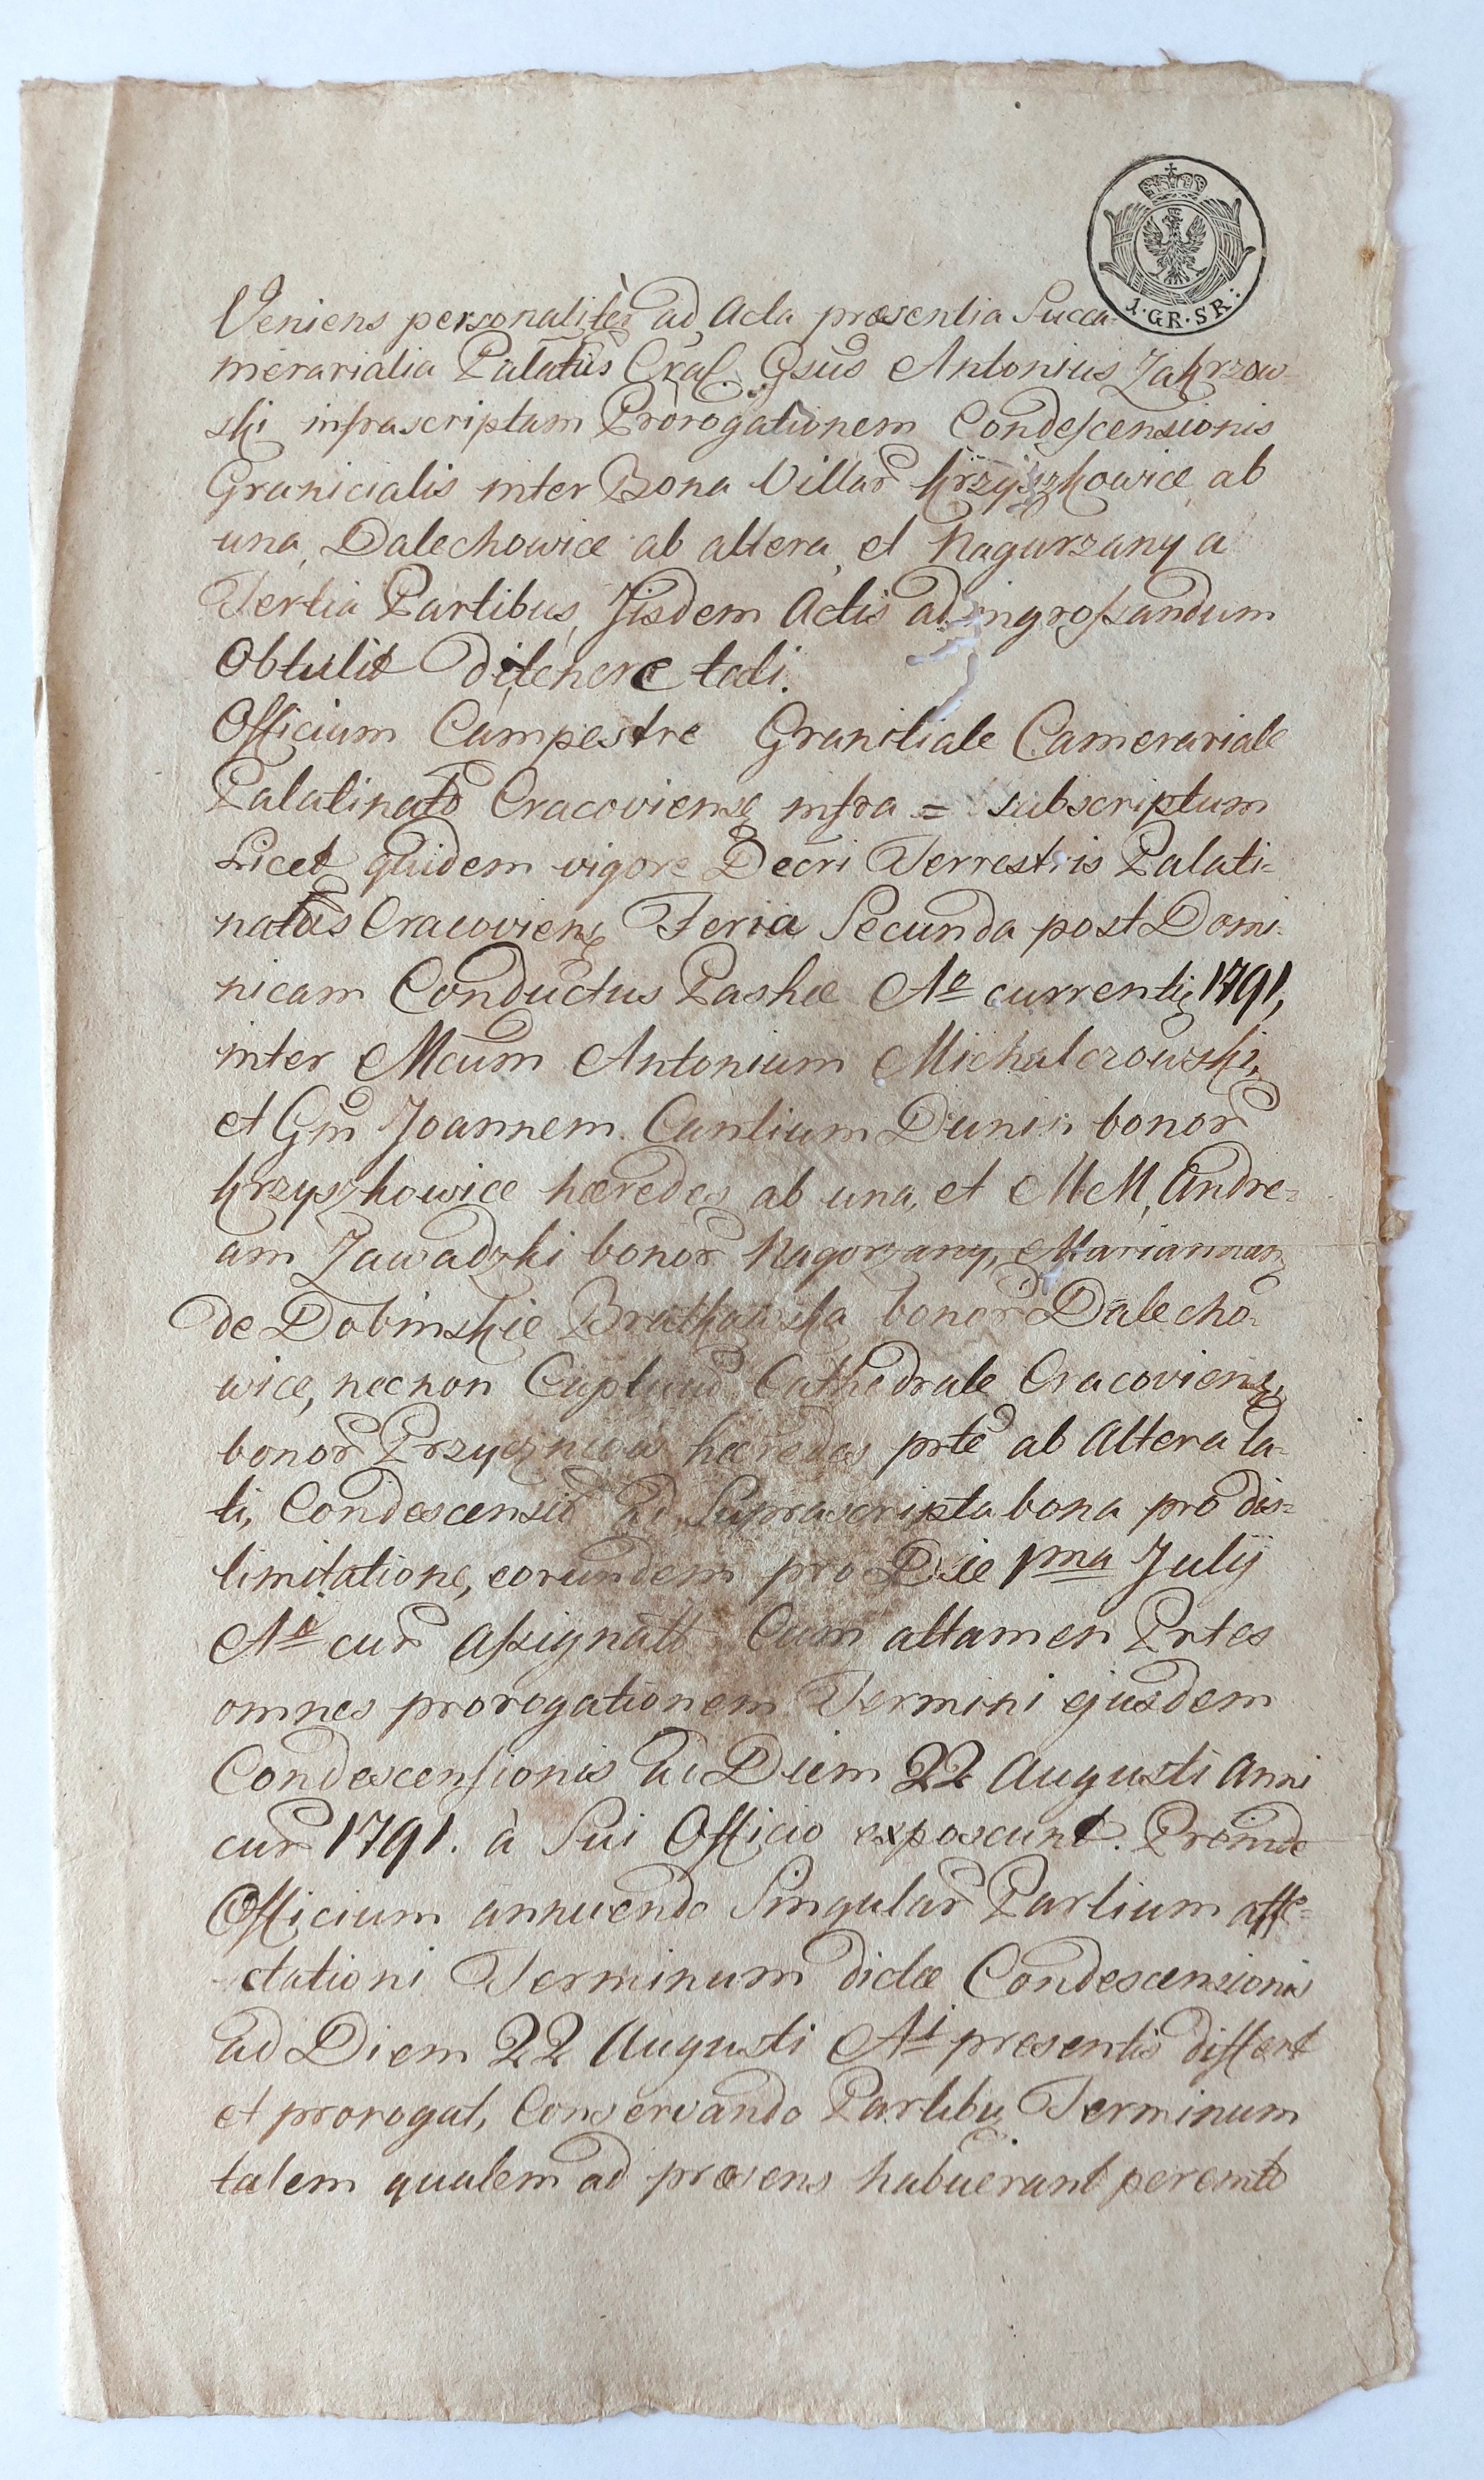 1·GR·SR:
Veniens personaliter ad Acta præsentia Succa-
merarialia Palatũs Cral. Gsus Antonius Zakrzow-
ski infrascriptam Prorogationem Condescensionis
Granicialis inter Bona Villar Krzyszkowice ab
una, Dalechowice ab altera, et Nagurzany a
Tertia Partibus, Iisdem Actis ad ingrossandum
Obtulit de tenore tali.
Officium Campestre Graniciale Camerariale
Palatinatq Cracoviensę infra = subscriptum
Licet quidem vigore Decri Terrestris Palati-
natus Cracovienę Feria Secunda post Domi-
nicam Conductus Paschæ Aº currentis 1791,
inter Mcum Antonium Michalczowski,
et Gm Joannem Cantium Dunin bonor
Krzyszkowice hæredes ab una, et MM, Andre-
am Zawadzki bonor Nagorzany, Mariannam
de Dobinskie Bratkowska bonor Dalecho-
wice, necnon Caplum Cathedrale Cracovienę,
bonor hæredes prte ab Altera la-
ti, Condescensio ad Suprascripta bona pro dis-
limitatione, eorundem pro Die 1ma Julij
Aº cur assignatt Cum attamen Prtes
omnes prorogationem Termini ejusdem
Condescensionis ad Diem 22 Augusti Anni
cur 1791. à Sui Officio exposcunt. Proinde
Officium annuendo Singular Partium affe-
ctationi Terminum dictæ Condescensionis
ad Diem 22 Augusti Ai presentis differt
et prorogat, Conservando Partibq Terminum
talem qualem ad præsens habuerant peremto